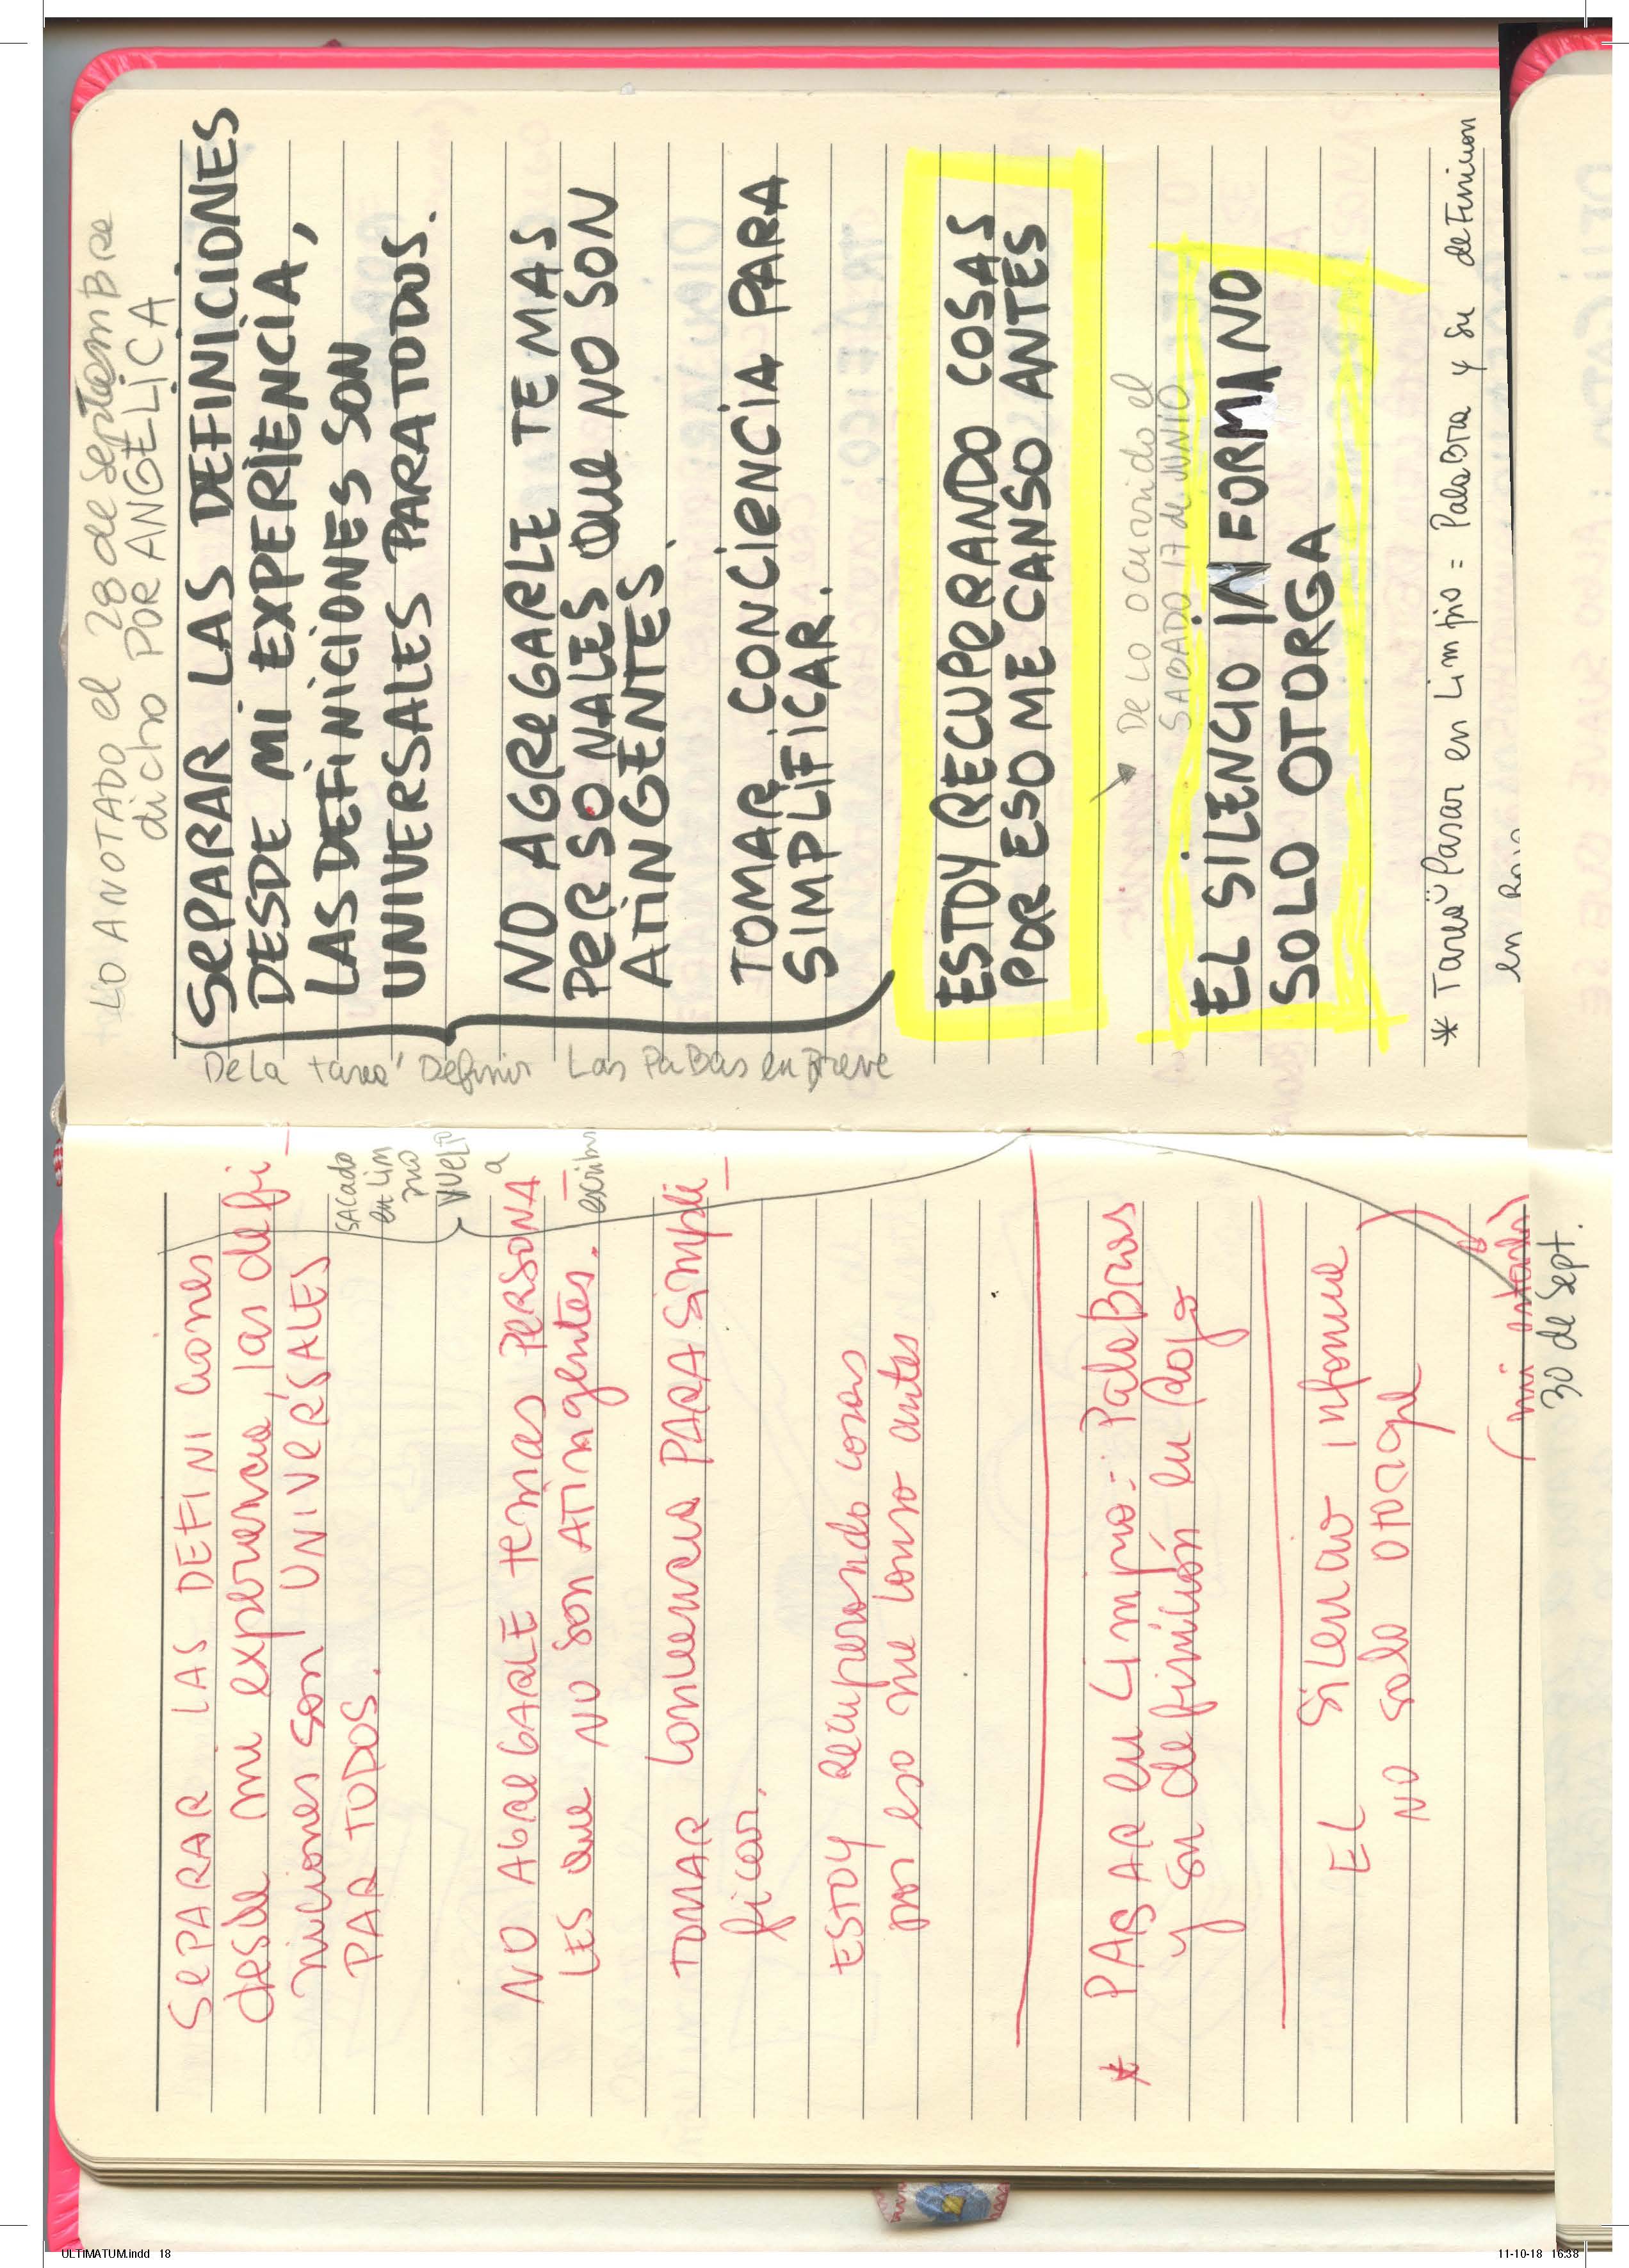 SePARAR LAS DEFINI ciones
desde mi experiencia, las defi-
niciones son UNIVERSALES
PAR TODOS.
SACado
en Lim
pio
VUELTO
a
escribir
NO AGREGARLE temas PERSONA-
LES que NO SON ATINgentes.
TOMAR conciencia PARA simpli-
ficar.
ESTOY Recuperando cosas
por eso me canso antes
* PASAR en Limpio = PalaBras
y su definición en Rojo
EL Silencio informa
NO solo otorga
(mi estado)
30 de Sept.
LO ANOTADO el 28 de SeptiemBre
dicho POR ANGELICA
SePARAR LAS DEFINICIONES
DESDE Mi EXPERIENCIA,
LAS DEFINICIONES SON
UNIVERSALES PARA TODOS.
NO AGREGARLE TEMAS
PERSONALES QUE NO SON
ATINGENTES.
TOMAR CONCIENCIA PARA
SIMPLIFICAR.
De La tarea Definir Las PaBas en Breve
ESTOY RECUPERANDO COSAS
POR ESO ME CANSO ANTES
De LO OCURRIDO el
SABADO 17 de JUNIO
EL SILENCIO INFORMA NO
SOLO OTORGA
* Tarea "Pasar en Limpio = PalaBra y Su deFinicion
en Rojo
ULTIMATUM.indd 18
11-10-18 16:38